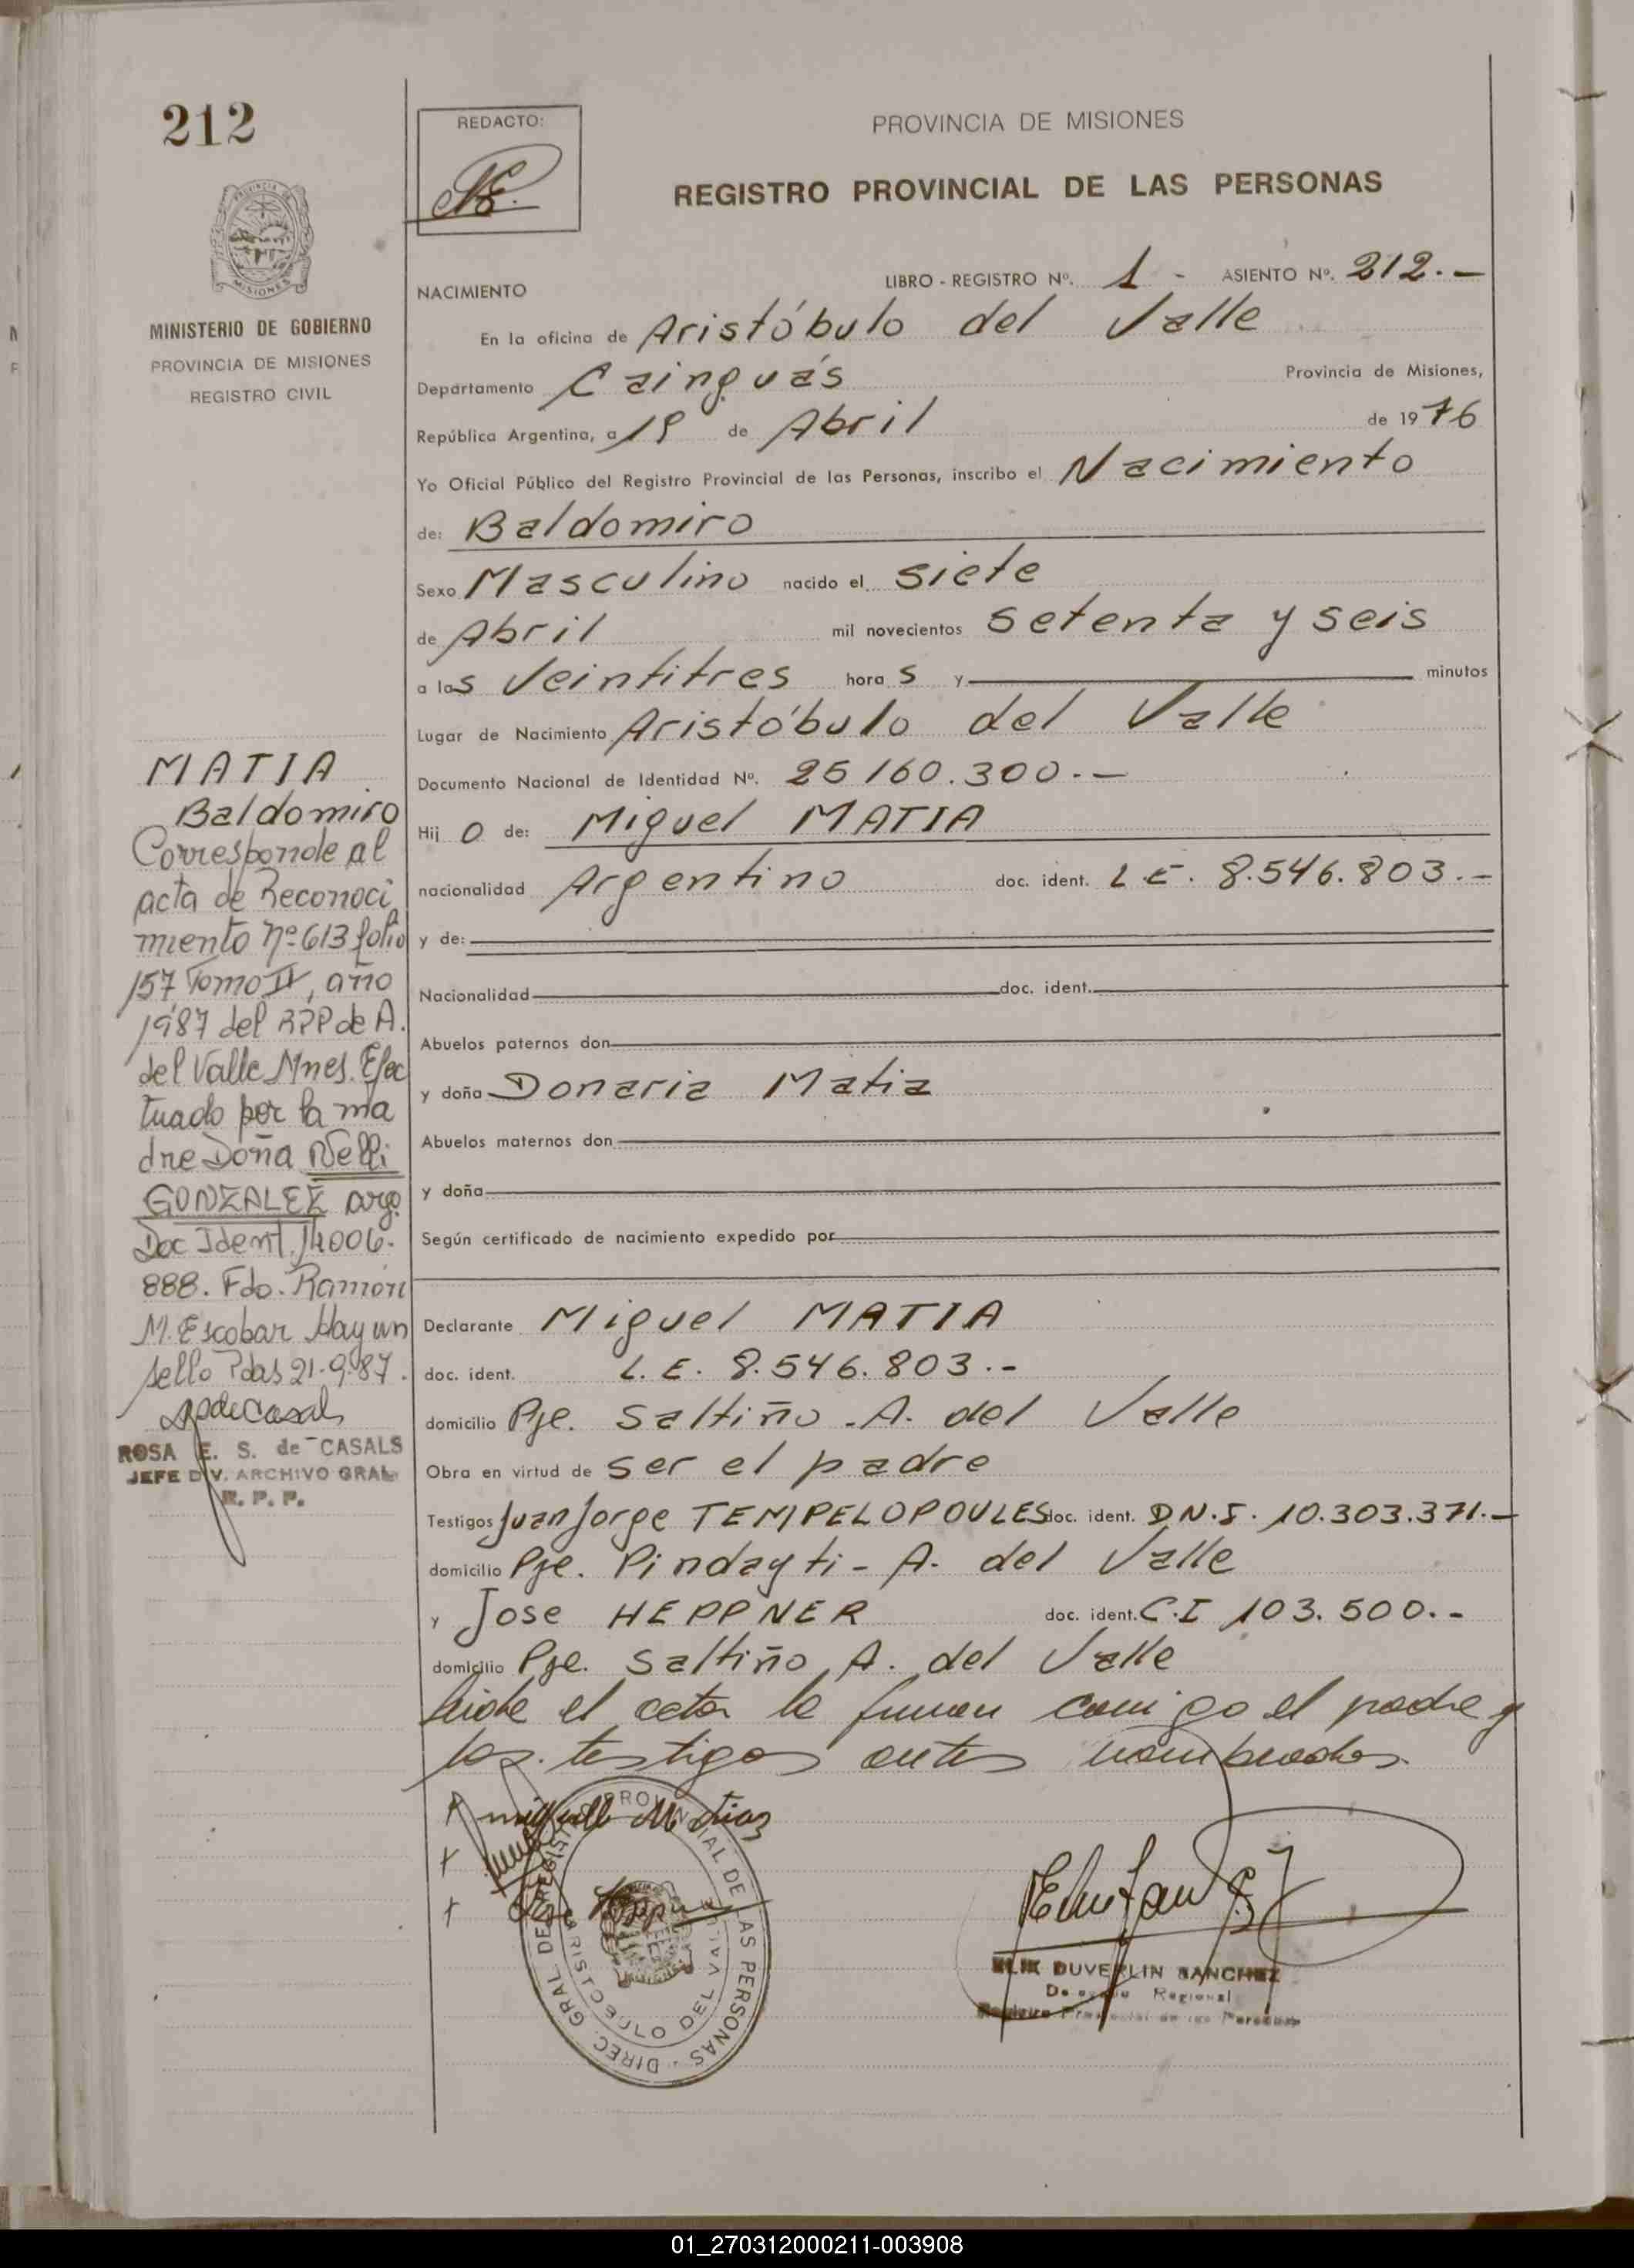 212
MINISTERIO DE GOBIERNO
PROVINCIA DE MISIONES
REGISTRO CIVIL
MATIA
Baldomiro
Corresponde al
acta de Reconoci
miento nº 613 folio
157 Tomo II, año
1987 del RPP de A.
del Valle Mnes. Efec
tuado por la ma
dre Doña Nelli
GONZALEZ arg.
Doc Ident. 14006.
888. Fdo. Ramón
M. Escobar Hay un
sello Pdas 21.9.87.
ROSA E. S. de CASALS
JEFE DIV. ARCHIVO GRAL
R. P. P.
REDACTO:
PROVINCIA DE MISIONES
REGISTRO PROVINCIAL DE LAS PERSONAS
LIBRO - REGISTRO Nº. 1 - ASIENTO Nº. 212.—
NACIMIENTO
En la oficina de Aristóbulo del Valle
Departamento Cainguás Provincia de Misiones,
República Argentina, a 19 de Abril de 1976
Yo Oficial Público del Registro Provincial de las Personas, inscribo el Nacimiento
de: Baldomiro
Sexo Masculino nacido el siete
de Abril mil novecientos setenta y seis
a las Veintitres horas y minutos
Lugar de Nacimiento Aristóbulo del Valle
Documento Nacional de Identidad Nº. 25160.300.—
Hijo de: Miguel MATIA
nacionalidad Argentino doc. ident. L.E. 8.546.803.—
y de:
Nacionalidad doc. ident.
Abuelos paternos don
y doña Donaria Matia
Abuelos maternos don
y doña
Según certificado de nacimiento expedido por
Declarante Miguel MATIA
doc. ident. L.E. 8.546.803.-
domicilio Pje. Saltiño - A. del Valle
Obra en virtud de ser el padre
Testigos Juan Jorge TEMPELOPOULES doc. ident. D.N.I. 10.303.371.—
domicilio Pje. Pindayti - A. del Valle
y Jose HEPPNER doc. ident. C.I 103.500.-
domicilio Pje. Saltiño A. del Valle
leida el acta la firman conmigo el padre y
los testigos antes nombrados.
DIREC. GRAL DEL REGISTRO PROVINCIAL DE LAS PERSONAS
ARISTOBULO DEL VALLE
DUVERLIN SANCHEZ
Regional
01_270312000211-003908